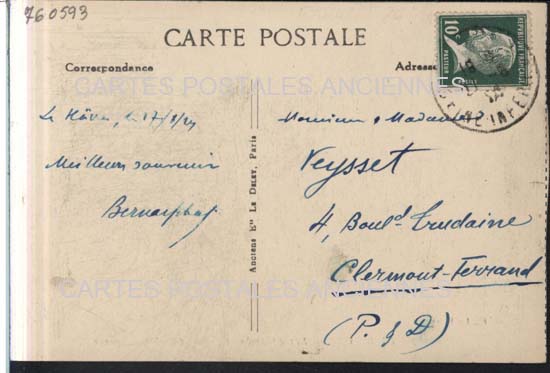 760593
CARTE POSTALE
Correspondance
Adresse
CARTES POSTALES ANCIENNES
10c
POSTES
REPUBLIQUE FRANÇAISE
SEINE INFER
Le Hâvre, le 17/8/24
Monsieur & Madame
Meilleur souvenir
Veysset
4, Boulᵈ Trudaine
Clermont-Ferrand
(P. & D)
Anciens Etˢ Le Deley, Paris
CARTES POSTALES ANCIENNES